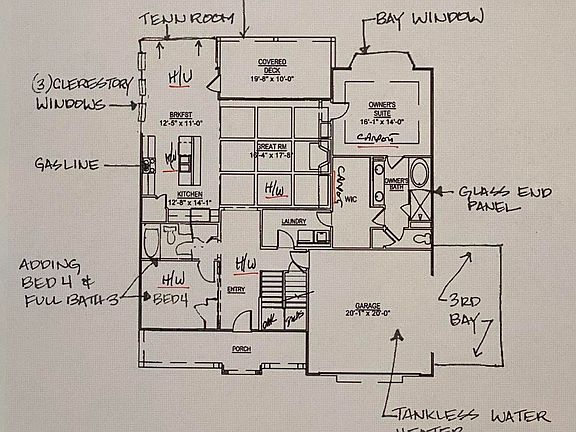 TENN ROOM
BAY WINDOW
COVERED
DECK
19'-8" x 10'-0"
H/W
(3) CLERESTORY
WINDOWS
OWNER'S
SUITE
16'-1" x 14'-0"
CARPET
BRKFST
12'-5" x 11'-0"
GREAT RM
16'-4" x 17'-8"
H/W
GASLINE
H/W
KITCHEN
12'-8" x 14'-1"
CARPET
WIC
OWNER'S
BATH
GLASS END
PANEL
LAUNDRY
ADDING
BED 4 &
FULL BATH 3
H/W
BED 4
H/W
ENTRY
GARAGE
20'-1" x 20'-0"
3RD
BAY
PORCH
TANKLESS WATER
HEATER